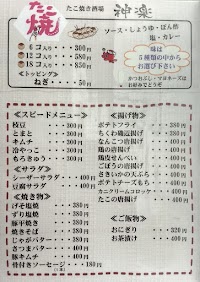 たこ焼
たこ焼き酒場
楽
ソース・しょうゆ・ぽん酢
塩・カレー
6コ入り・・・300円
12コ入り・・・580円
18コ入り・・・850円
≪トッピング≫
ねぎ・・・50円
味は
5種類の中から
お選び下さい
かつおぶし・マヨネーズは
お好みでどうぞ
≪スピードメニュー≫
枝豆・・・300円
とまと・・・300円
キムチ・・・300円
冷やっこ・・・300円
もろきゅう・・・300円
≪サラダ≫
シーザーサラダ・・・400円
豆腐サラダ・・・400円
≪焼き物≫
げそ塩焼・・・380円
ずり塩焼・・・380円
豚平焼き・・・380円
焼きそば・・・380円
じゃがバター・・・380円
さつまバター・・・380円
豚キムチ・・・380円
骨付きソーセージ・・・180円
≪揚げ物≫
ポテトフライ・・・380円
ちくわ磯辺揚げ・・・380円
なんこつ唐揚げ・・・380円
鶏の唐揚げ・・・380円
鶏皮せんべい・・・380円
ごぼうの唐揚げ・・・380円
さきいかの天ぷら・・・400円
ポテトチーズもち・・・400円
カニクリームコロッケ・・・400円
たこの唐揚げ・・・400円
≪ご飯物≫
おにぎり・・・320円
お茶漬け・・・400円